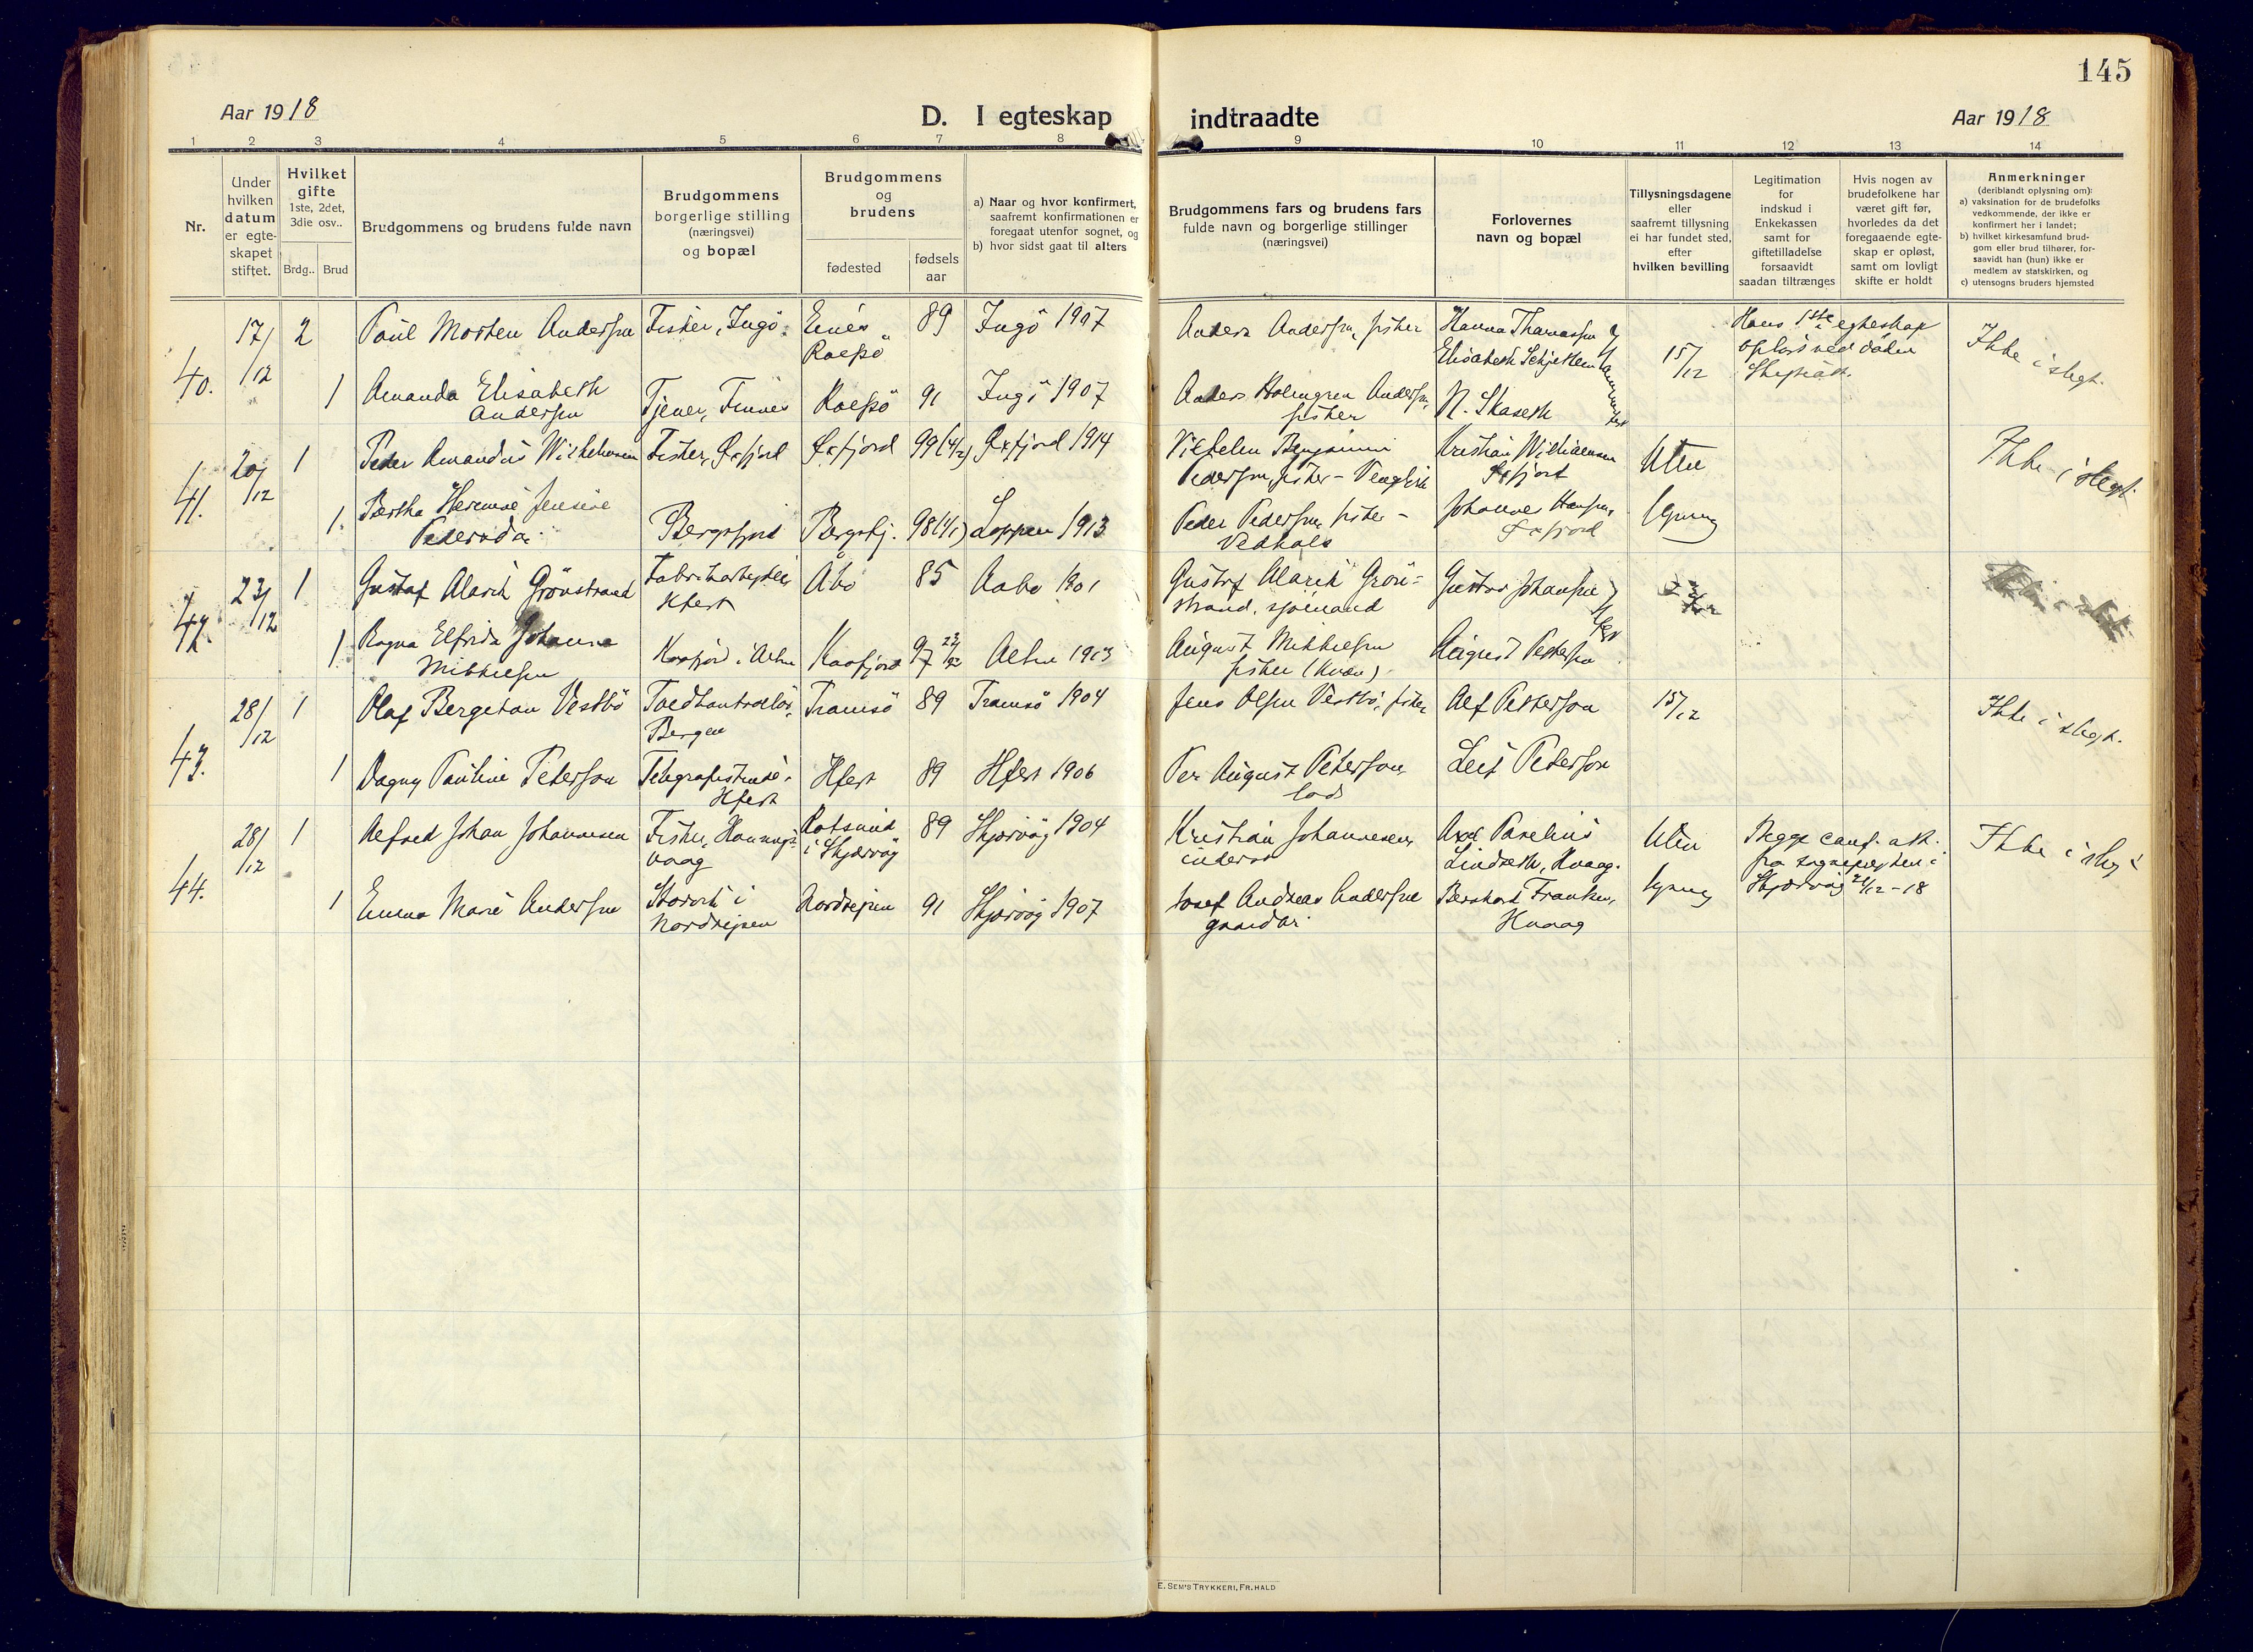 145
Aar 1918
D. I egteskap indtraadte
Aar 1918
1 2 3 4 5 6 7 8 9 10 11 12 13 14
Nr.
Under
hvilken
datum
er egte-
skapet
stiftet.
Hvilket
gifte
1ste, 2det,
3die osv..
Brdg.. Brud
Brudgommens og brudens fulde navn
Brudgommens
borgerlige stilling
(næringsvei)
og bopæl
Brudgommens
og
brudens
fødested
fødsels
aar
a) Naar og hvor konfirmert,
saafremt konfirmationen er
foregaat utenfor sognet, og
b) hvor sidst gaat til alters
Brudgommens fars og brudens fars
fulde navn og borgerlige stillinger
(næringsvei)
Forlovernes
navn og bopæl
Tillysningsdagene
eller
saafremt tillysning
ei har fundet sted,
efter
hvilken bevilling
Legitimation
for
indskud i
Enkekassen
samt for
giftetilladelse
forsaavidt
saadan tiltrænges
Hvis nogen av
brudefolkene har
været gift før,
hvorledes da det
foregaaende egte-
skap er opløst,
samt om lovligt
skifte er holdt
Anmerkninger
(deriblandt oplysning om):
a) vaksination for de brudefolks
vedkommende, der ikke er
konfirmert her i landet;
b) hvilket kirkesamfund brud-
gom eller brud tilhører, for-
saavidt han (hun) ikke er
medlem av statskirken, og
c) utensogns bruders hjemsted
40.
17/12 2
Paul Morten Andersen
Fisker, Ingö
Rolfsö
89
Ingö 1907
Anders Andersen, fisker
Hanna Thomassen
Elisabeth
15/12
Hans 1ste egteskap
opløst ved döden
Ikke i slegt.
1
Amanda Elisabeth
Andersen
Tjener, Finnes
Rolfsö
91
Ingö 1907
Anders Holmgren Andersen,
fisker
N. Skaseth
41.
20/12 1
Peder Amandus Wilhelmsen
Fisker, Øxfjord
Øxfjord
99 (4/2)
Øxfjord 1914
Vilhelm Benjamin
Pedersen fisker –
Kristian Williamsen
Øxfjord
Uten
lysning
Ikke i slegt.
1
Bertha Hermine Jensine
Pedersdtr.
Bergsfjord
Bergsfj.
98 (1/1)
Loppen 1913
Peder Pedersen, fisker –
Johannes Hansen,
Øxfjord
42.
23/12 1
Gustaf Alarik Grönstrand
Fabrikarbeider
Hfest
Åbo
85
Aabo 1901
Gustaf Alarik Grön-
strand, sjömand
Gustav Johansen
1
Ragna Elfrida Johanna
Mikkelsen
Kaafjord i Alten
Kaafjord
97
Alten 1913
August Mikkelsen
fisker (kvæn)
August Pettersen
43.
28/12 1
Olaf Bergeton Vestbö
Toldkontrollör,
Bergen
Tromsö
89
Tromsö 1904
Jens Olsen Vestbö, fisker
Alf Petterson
15/12
Ikke i slegt.
1
Dagny Pauline Peterson
Telegrafistinde,
Hfest
Hfest
89
Hfest 1906
Per August Peterson,
lods
Leif Peterson
44.
28/12 1
Alfred Johan Johannesen
Fisker, Honnings-
vaag
Rotsund
i Skjærvöy
89
Skjærvöy 1904
Kristian Johannesen,
inderst
Axel Paselius
Lindseth, Hvaag.
Uten
lysning
Begge conf. att.
fra sogneprösten i
Skjærvöy 21/12–18
Ikke i slegt
1
Emma Marie Andersen
Storvik i
Nordreisen
Nordreisen
91
Skjærvöy 1907
Josef Andreas Andersen
gaardbr.
Bernhard Franksen,
Hvaag
E. SEM'S TRYKKERI, FR.HALD